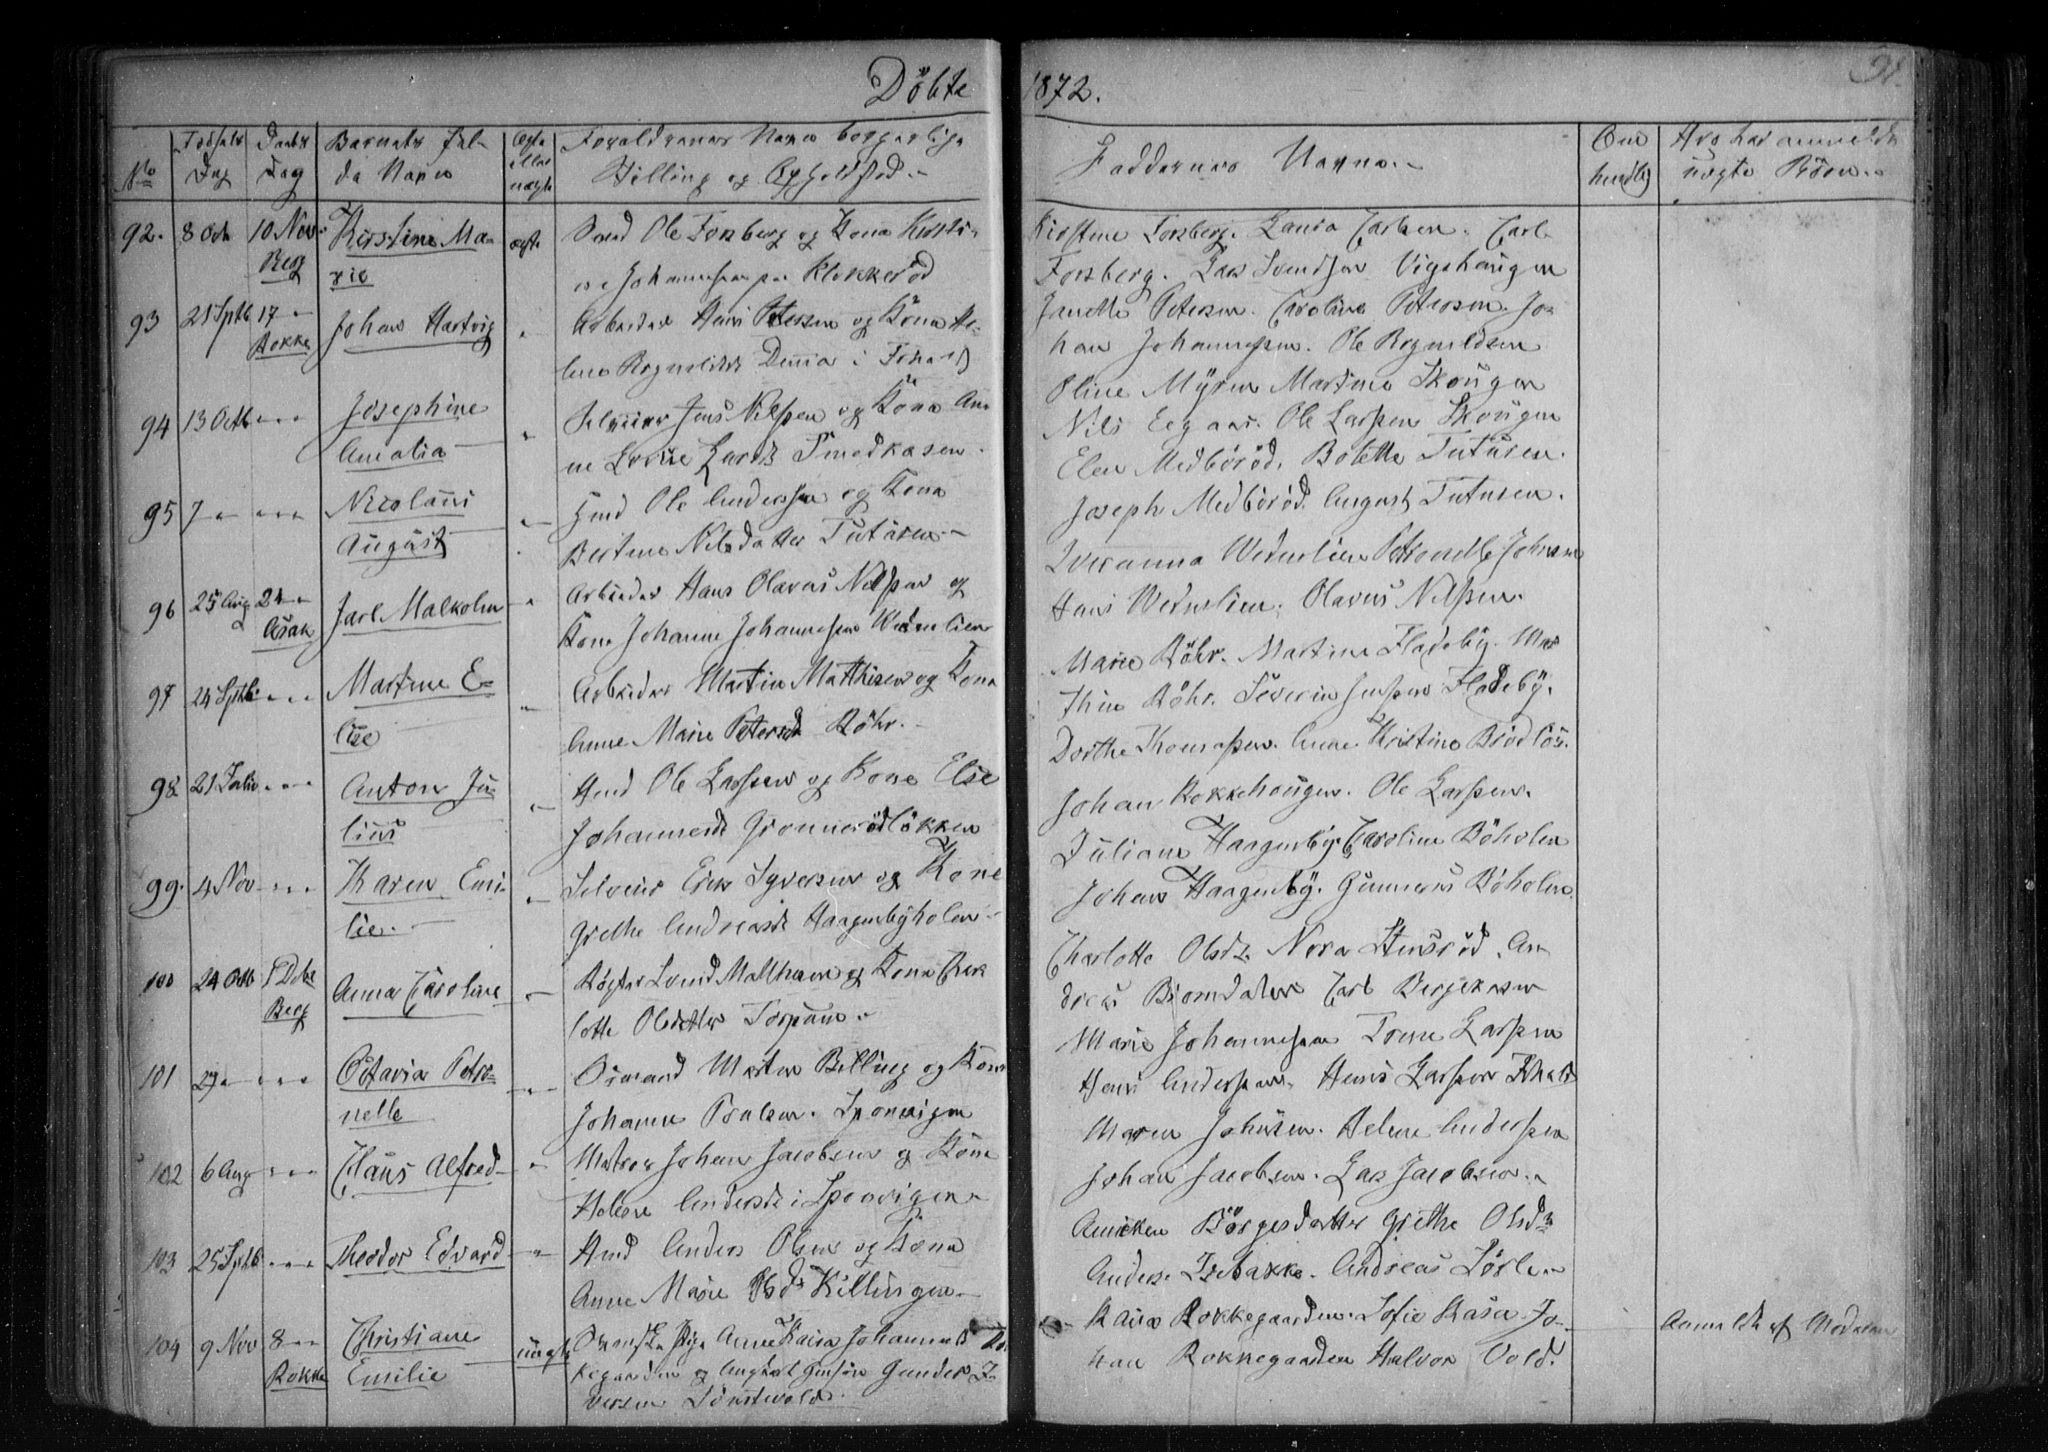 Döbte
1872.
91.
No
Födsels Dag
Daabs Dag
Barnets ful-
de Navn
Ægte eller uægte
Forældrenes Navn borgerlige
Stilling og Opholdsted.
Faddernes Navne.
Hvo har anmeldt
uægte Börn.
92. 8 Octb 10 Nov. Berg Kirstine Ma-
rie ægte
Smed Ole Forsberg og Kone Kirsti-
ne Johannessen Klokkeröd
Kirstine Forsberg. Laura Carlsen. Carl
Forsberg. Lars Svendsen Vigshaugen
93 21 Sptb 17 " Rokke Johan Hartvig "
Arbeider Hans Petersen og Kone He-
lene Rognelsd. Demma i
Janette Petersen. Caroline Petersen. Jo-
han Johannessen. Ole Rognildsen
94 13 Octb " " " Josephine
Amalia "
Selveier Jens Nilssen og Kone An-
ne Lovise Larsd. Smedkasen.
Oline Myren Martine Skougen
Nils Eegaas. Ole Larssen Skougen
95 7 " " " " Nicolaus
August "
Hmd Ole Anderssen og Kone
Bertine Nilsdatter Tuturen
Elen Medböröd. Bolette Tuturen.
Joseph Medböröd. August Tuturen.
96 25 Aug 24 " Asak Jarl Malkolm "
Arbeider Hans Olavus Nilssen og
Kone Johanne Johannessen Wedenlien
Iveranna Wedenlien Petronelle Johnsen
Hans Wedenlien. Olavus Nilssen.
97 24 Sptb. " " " Martine E-
lise "
Arbeider Martin Matthisen og Kone
Anne Marie Petersd. Röhr.
Marie Röhr. Martine Fladeby. Mar
thin Röhr. Severin Jenssen Fladeby.
98 21 Juli " " " Anton Ju-
lius "
Hmd Ole Larssen og Kone Else
Johannesd. Grönnerödlökken
Dorthe Thomassen. Anne Kristine Brödlös.
Johan Rokkehougen. Ole Larssen.
99. 4 Nov " " " Karen Emi-
lie. "
Selveier Erik Syversen og Kone
Grethe Andreasd. Haagenbyholen
Juliane Haagenby. Caroline Böholen
Johan Haagenby. Gunnerus Böholen.
100 24 Octb 1 Dcbr Berg Anna Caroline "
Rögter Svend Mathisen og Kone Char
lotte Olsdatter Torpum.
Charlotte Olsd. Nora Stensröd. An
dreas Bjorndalen Carl Bergekasen
101 29 " " " " Octavia Petro-
nelle "
Ösmand Morten Billing og Kone
Johanne Poulsen. Sponvigen
Marie Johannessen Trine Larssen
Hans Anderssen. Hans Larssen
102 6 Aug " " " Claus Alfred "
Matros Johan Jacobsen og Kone
Helene Andersd. i Sponvigen
Maren Johnsen. Helene Anderssen
Johan Jacobsen. Lars Jacobsen.
103 25 Sptb " " " Theodor Edvard "
Hmd Anders Olsen og Kone
Anne Marie Olsd. Killingen
Anniken Börgesdatter Grethe Olsd.
Anders Isebakke. Andreas Sörlie
104 9 Nov 8 " Rokke Christiane
Emilie uægte
Svenske Pige Anne Kaisa Johannesd. Ro
kegaarden og Ungkarl Gunder I-
versen Törstevold.
Kaisa Rokkegaarden. Sofie Kasa. Jo-
han Rokkegaarden Halvor Vold.
Anmeldt af Moderen